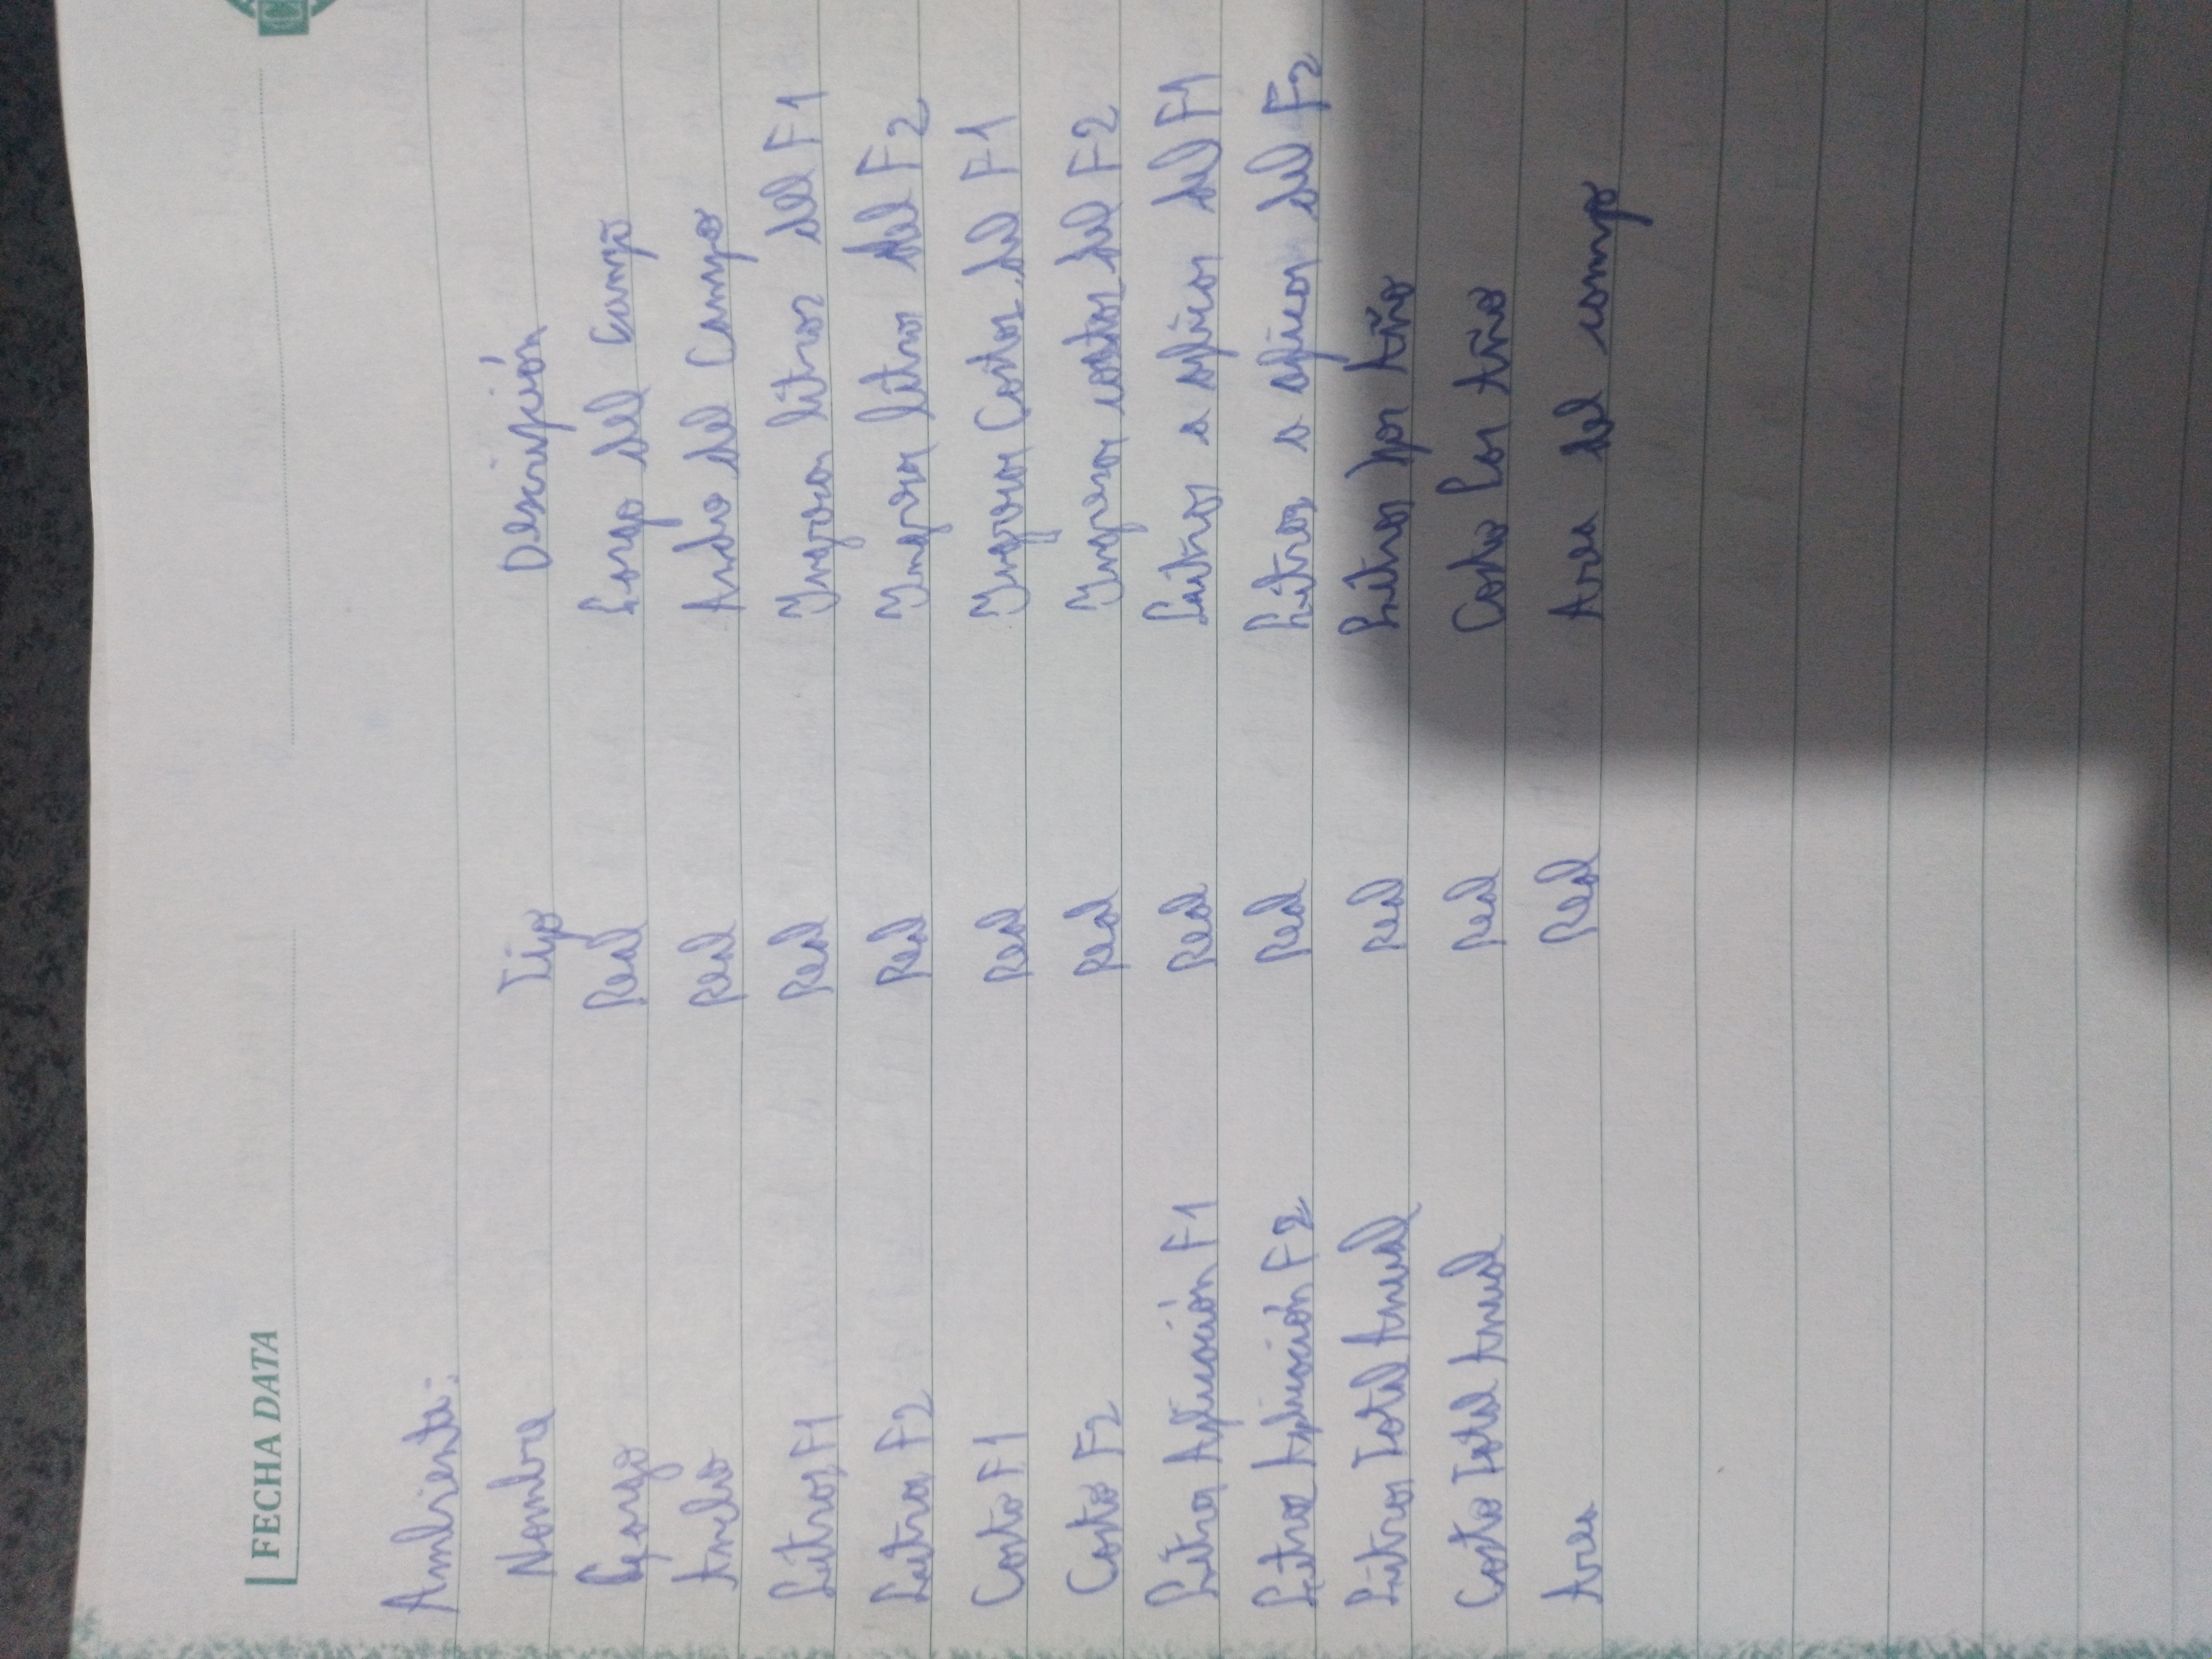 FECHA DATA
Ambiente:
Nombre Tipo Descripción
Largo Real Largo del campo
Ancho Real Ancho del Campo
Litros F1 Real Ingresar litros del F1
Litros F2 Real Ingresar litros del F2
Costo F1 Real Ingresar Costos del F1
Costo F2 Real Ingresar costos del F2
Litros Aplicación F1 Real Litros a aplicar del F1
Litros Aplicación F2 Real Litros a aplicar del F2
Litros Total Anual Real Litros por Año
Costo Total Anual Real Costo Por Año
Area Real Area del campo